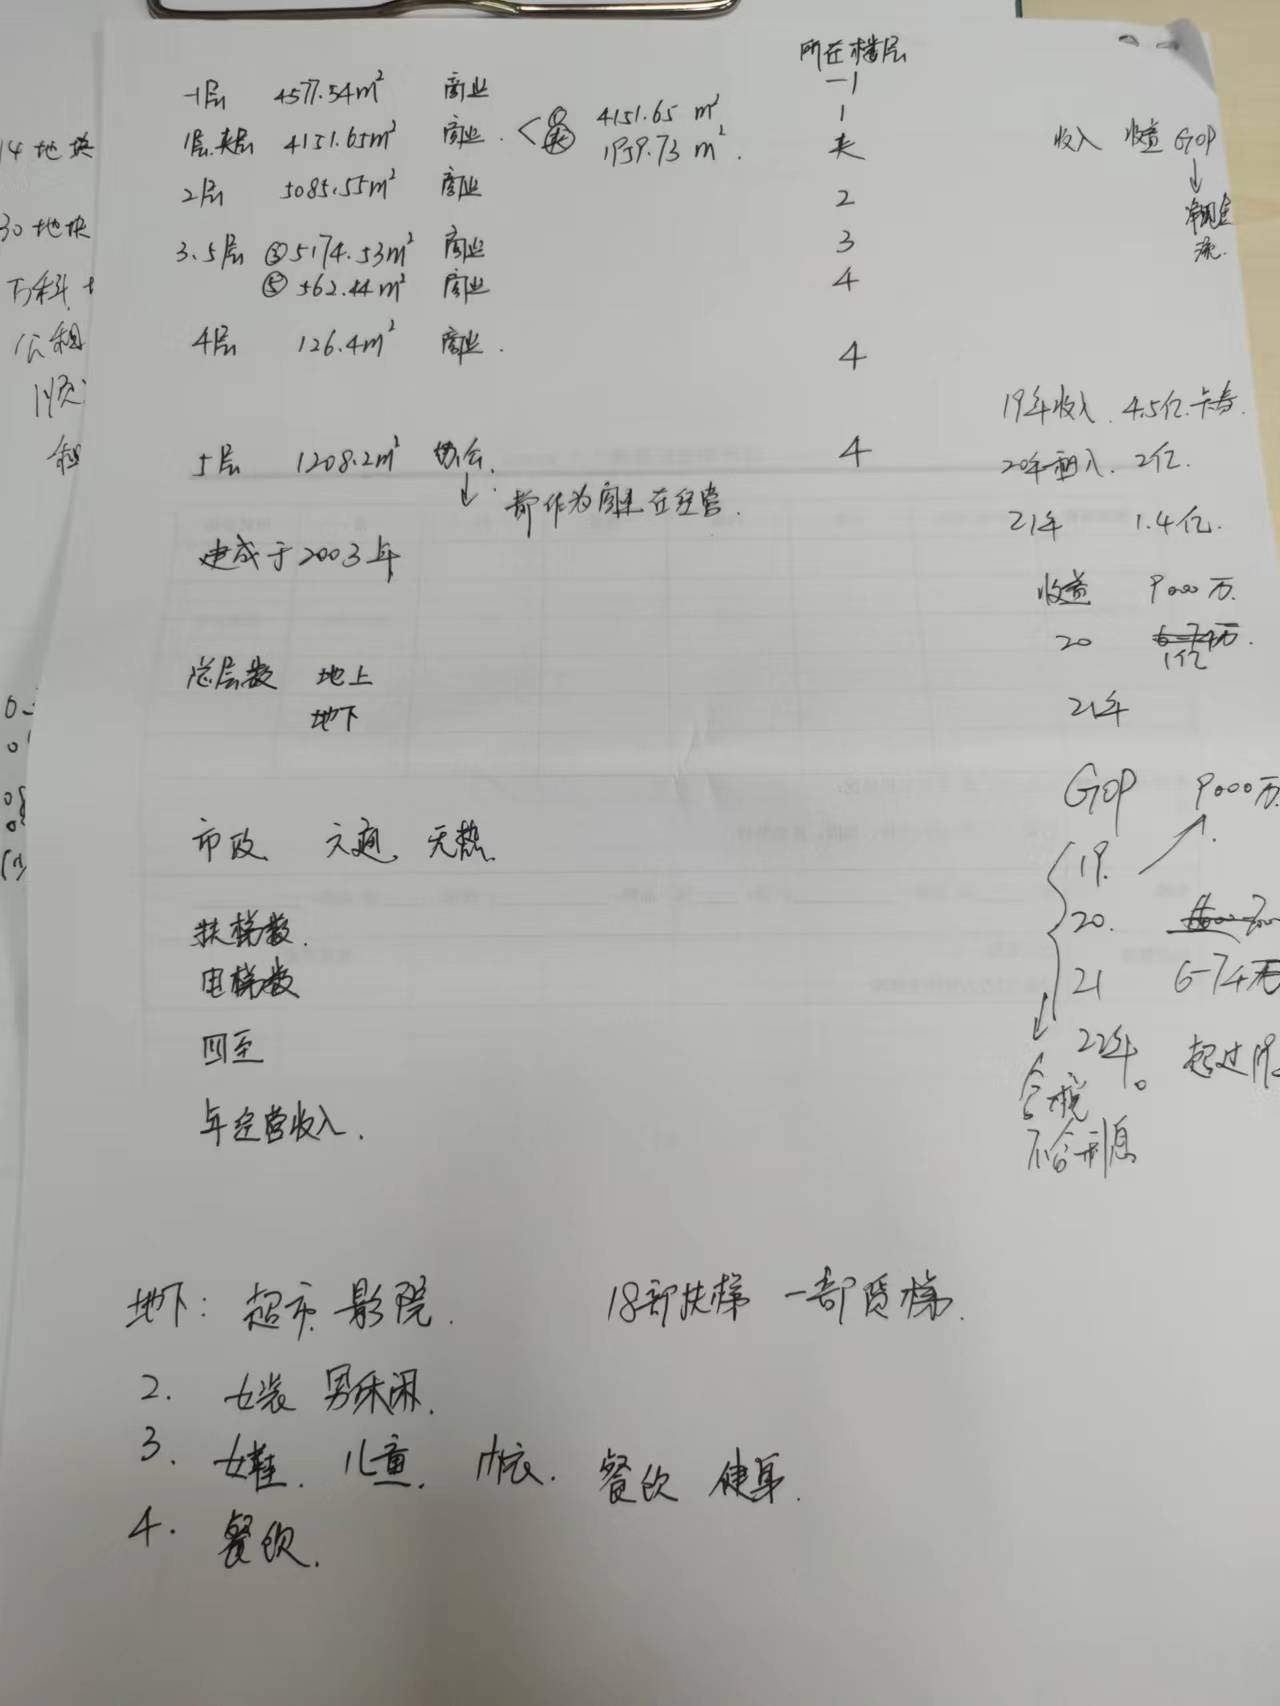 所在楼层
-1层 4577.54m² 商业 -1
1层.夹层 4151.65m² 商业. < ① 4151.65 m² 1
夹 1959.73 m². 夹
收入 收益 GOP
↓
净现金
流.
2层 5085.55m² 商业 2
3.5层 ③5174.53m² 商业 3
⑤562.44m² 商业 4
4层 126.4m² 商业. 4
5层 1208.2m² 协会. 4
↓ 都作为商业在经营.
建成于2003年
19年收入. 4.5亿.卡券.
20年收入. 2亿.
21年 1.4亿.
收益 9000万.
20 1亿
21年
总层数 地上
地下
GOP 9000万
19.
20.
21 6-7千万
22年. 超过19
含税
不含利息
市政 六通 无热
扶梯数.
电梯数
四至
年经营收入.
地下: 超市 影院. 18部扶梯 一部货梯.
2. 女装 男休闲.
3. 女鞋. 儿童. 内衣. 餐饮 健身.
4. 餐饮.
14地块
30地块
万科
公租